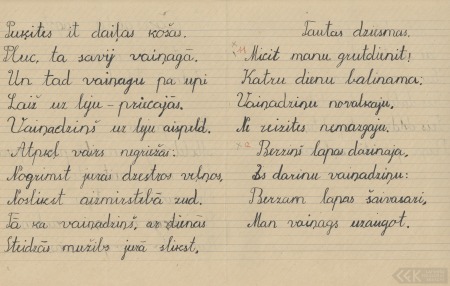 Puķītes it daiļas košas.
Pluc, ta savij vaiņagā.
Un tad vaiņagu pa upi
Laiž uz leju – priecājās.
Vaiņadziņš uz leju aispeld.
Atpakaļ vairs negriežas.
Nogrimst jurās dzestros veļņos,
Noslikst aizmirstībā zud.
Tā ka vaiņadziņš, ar dienās
Steidzās mužības jurā slikst.
Tautas dziesmas.
Mācit manu grutdieniti!
Katru dienu balinama;
Vaiņadziņu novalkaju,
Ne reizites nemazgaju.
Berziņš lapas darinaja,
Es darinu vaiņadziņu:
Berzam lapas šaivasari,
Man vaiņags uzaugot.